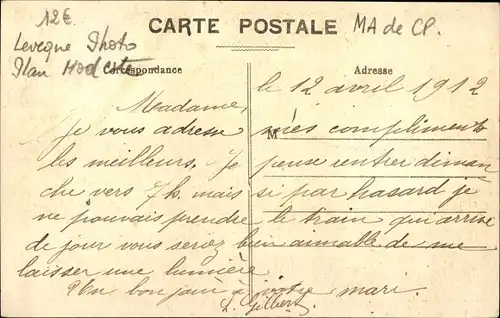 12€
CARTE POSTALE
MA de CP.
Leveque Photo
Ilan Modeste
Correspondance
Adresse
le 12 avril 1912
Madame,
M
je vous adresse mes compliments
les meilleurs. Je pense rentrer diman
che vers 7h. mais si par hasard je
ne pouvais prendre le train qui arrive
de jour vous seriez bien aimable de me
laisser une lumière
Un bonjour à votre mari.
L. Gilbert